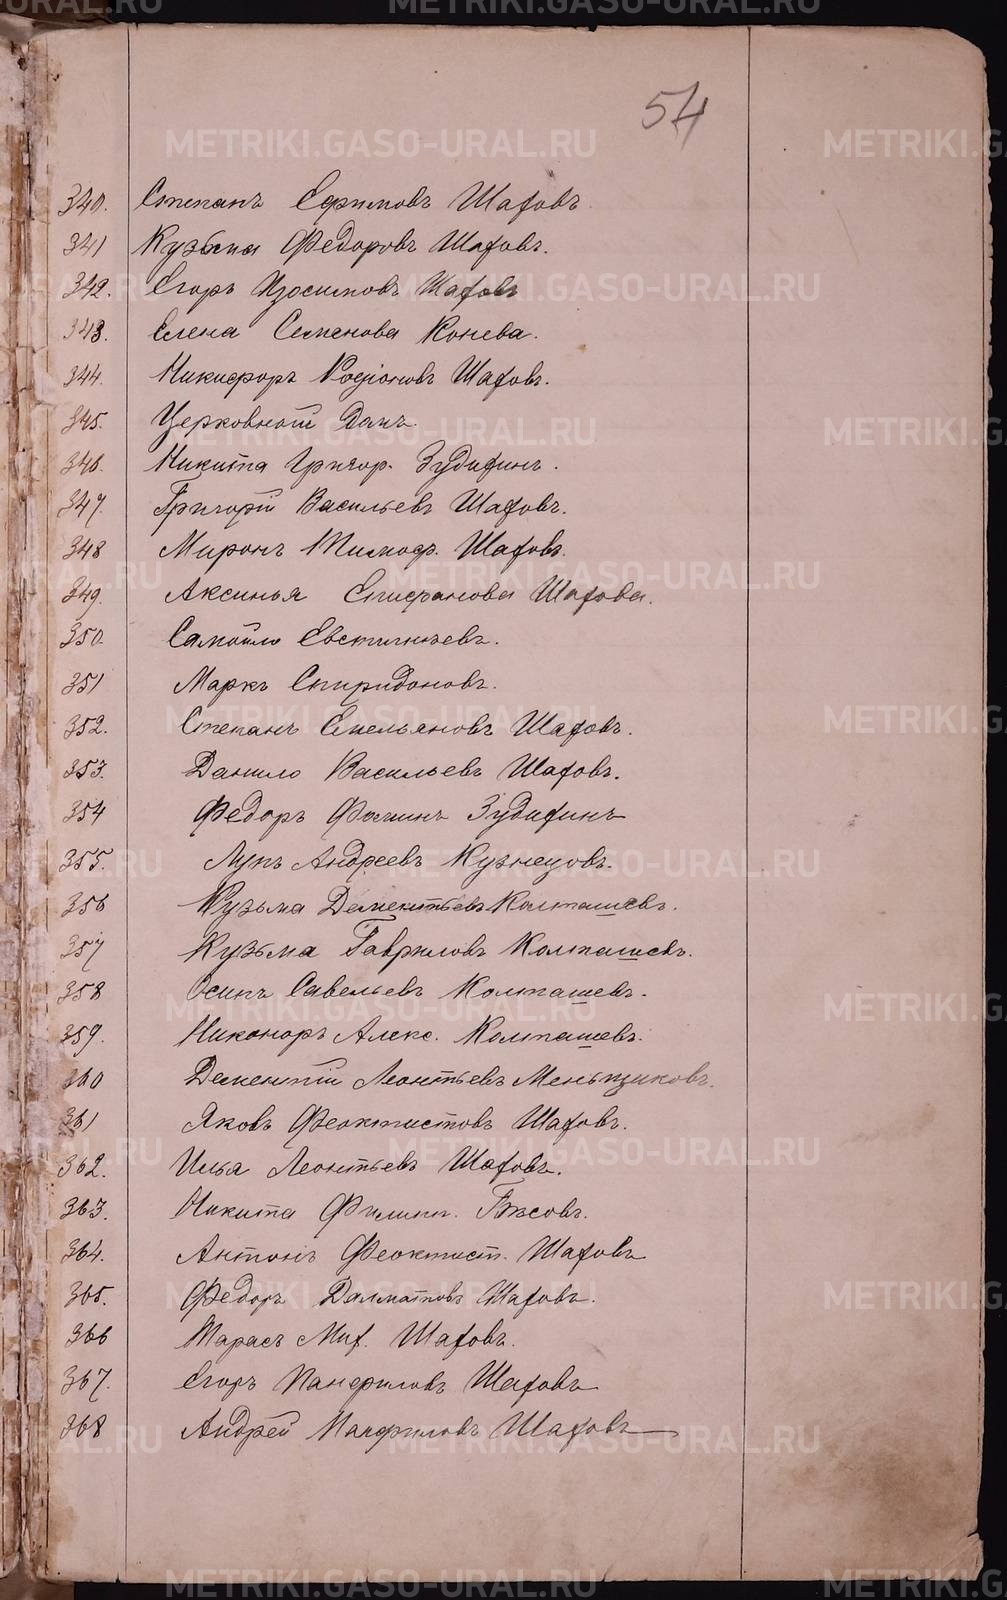 54
340. Степанъ Ефимовъ Шаховъ
341 Кузьма Федоровъ Шаховъ.
342. Егоръ Изосимовъ Шаховъ
343. Елена Семенова Конева.
344. Никифоръ Родіоновъ Шаховъ.
345. Церковной Домъ.
346. Никита Григор. Зудихинъ.
347. Григорій Васильевъ Шаховъ.
348 Миронъ Тимоф. Шаховъ.
349. Аксинья Епифанова Шахова.
350. Самойло Евстигнѣевъ.
351 Маркъ Спиридоновъ.
352. Степанъ Емельяновъ Шаховъ.
353. Данило Васильевъ Шаховъ.
354 Федоръ Фоминъ Зудихинъ
355. Лупъ Андреевъ Кузнецовъ.
356 Кузьма Дементьевъ Колташевъ.
357 Кузьма Гавриловъ Колташевъ.
358 Осипъ Савельевъ Колташевъ.
359. Никоноръ Алекс. Колташевъ.
360 Дементій Леонтьевъ Меньщиковъ.
361 Яковъ Феоктистовъ Шаховъ.
362. Илья Леонтьевъ Шаховъ.
363. Никита Филипп. Бѣсовъ.
364. Антонъ Феоктист. Шаховъ
365. Федоръ Далматовъ Шаховъ.
366 Тарасъ Мих. Шаховъ.
367. Егоръ Панфиловъ Шаховъ
368 Андрей Панфиловъ Шаховъ
METRIKI.GASO-URAL.RU